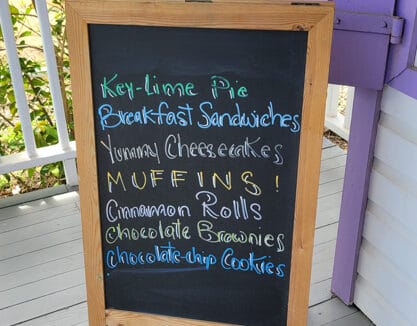 Key-Lime Pie
Breakfast Sandwiches
Yummy Cheesecakes
MUFFINS!
Cinnamon Rolls
Chocolate Brownies
Chocolate-chip Cookies